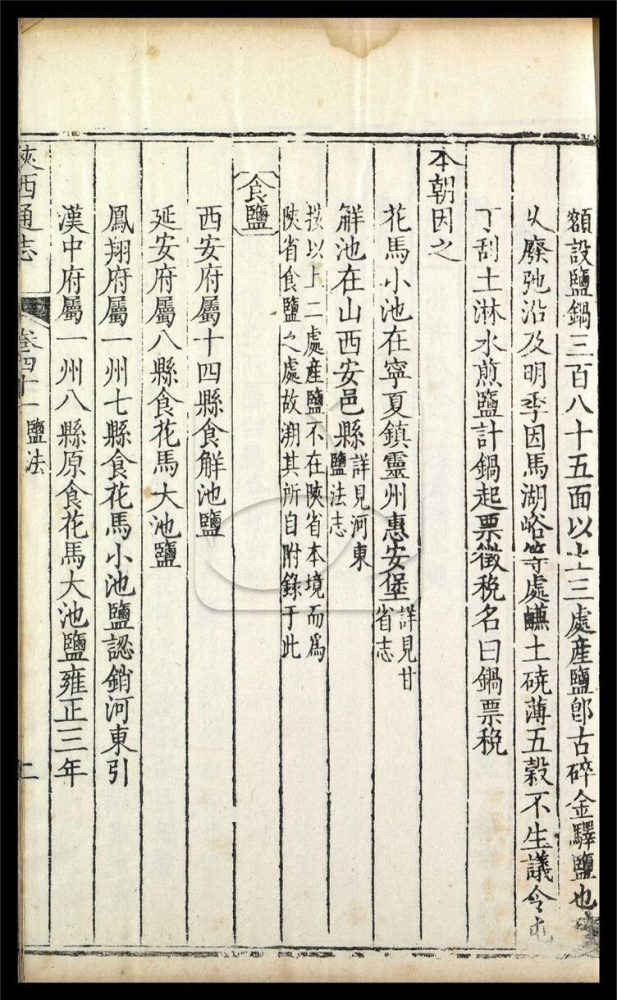 額設鹽鍋三百八十五面以上三處產鹽卽古碎金驛鹽也
久廢弛沿及明季因馬湖峪等處鹻土磽薄五穀不生議令屯
丁刮土淋水煎鹽計鍋起票徵稅名曰鍋票稅
本朝因之
花馬小池在寧夏鎮靈州惠安堡詳見甘
省志
解池在山西安邑縣詳見河東
鹽法志
按以上二處產鹽不在陝省本境而爲
陝省食鹽之處故溯其所自附錄于此
食鹽
西安府屬十四縣食解池鹽
延安府屬八縣食花馬大池鹽
鳳翔府屬一州七縣食花馬小池鹽認銷河東引
漢中府屬一州八縣原食花馬大池鹽雍正三年
陝西通志
卷四十一
鹽法
二